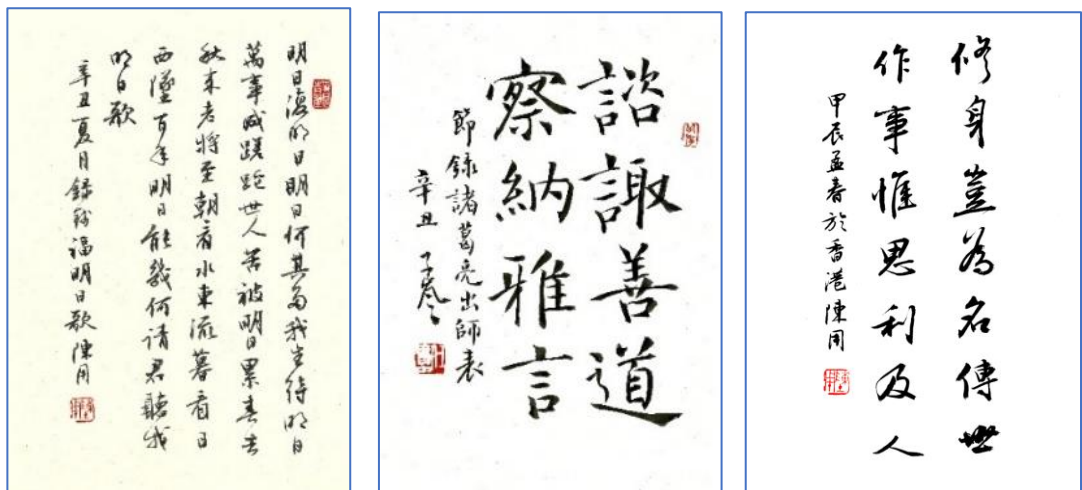 明日復明日明日何其多我生待明日
萬事成蹉跎世人苦被明日累春去
秋來老將至朝看水東流暮看日
西墜百年明日能幾何請君聽我
明日歌
辛丑夏月錄錢福明日歌陳用
諮諏善道
察納雅言
節錄諸葛亮出師表
辛丑
修身豈為名傳世
作事惟思利及人
甲辰孟春於香港陳用